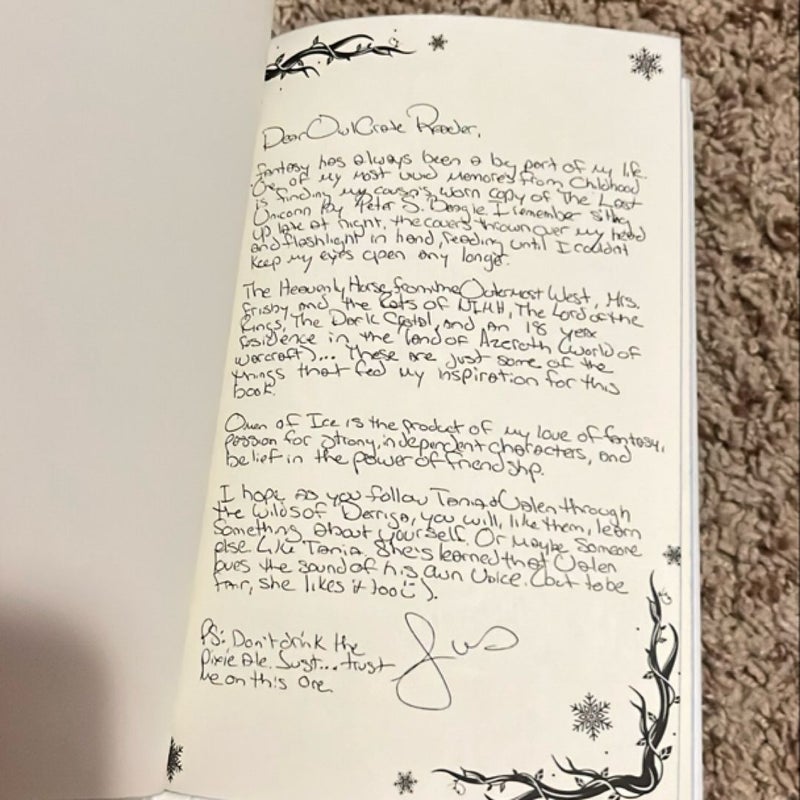 Dear OwlCrate Reader,
fantasy has always been a big part of my life.
One of my most vivid memories from childhood
is finding my cousin's worn copy of The Last
Unicorn by Peter S. Beagle. I remember sitting
up late at night, the covers thrown over my head
and flashlight in hand, reading until I couldn't
keep my eyes open any longer.
The Heavenly Horse from the Outermost West, Mrs.
Frisby and the Rats of NIMH, The Lord of the
Rings, The Dark Crystal, and an 18 year
residence in the land of Azeroth (World of
Warcraft)... These are just some of the
things that fed my inspiration for this
book.
Queen of Ice is the product of my love of fantasy,
passion for strong, independent characters, and
belief in the power of friendship.
I hope as you follow Tania & Valen through
the wilds of you will, like them, learn
something about yourself. Or maybe someone
else. Like Tania. She's learned that Valen
loves the sound of his own voice. (but to be
fair, she likes it too :) ).
PS: Don't drink the
pixie ale. Just... trust
me on this one